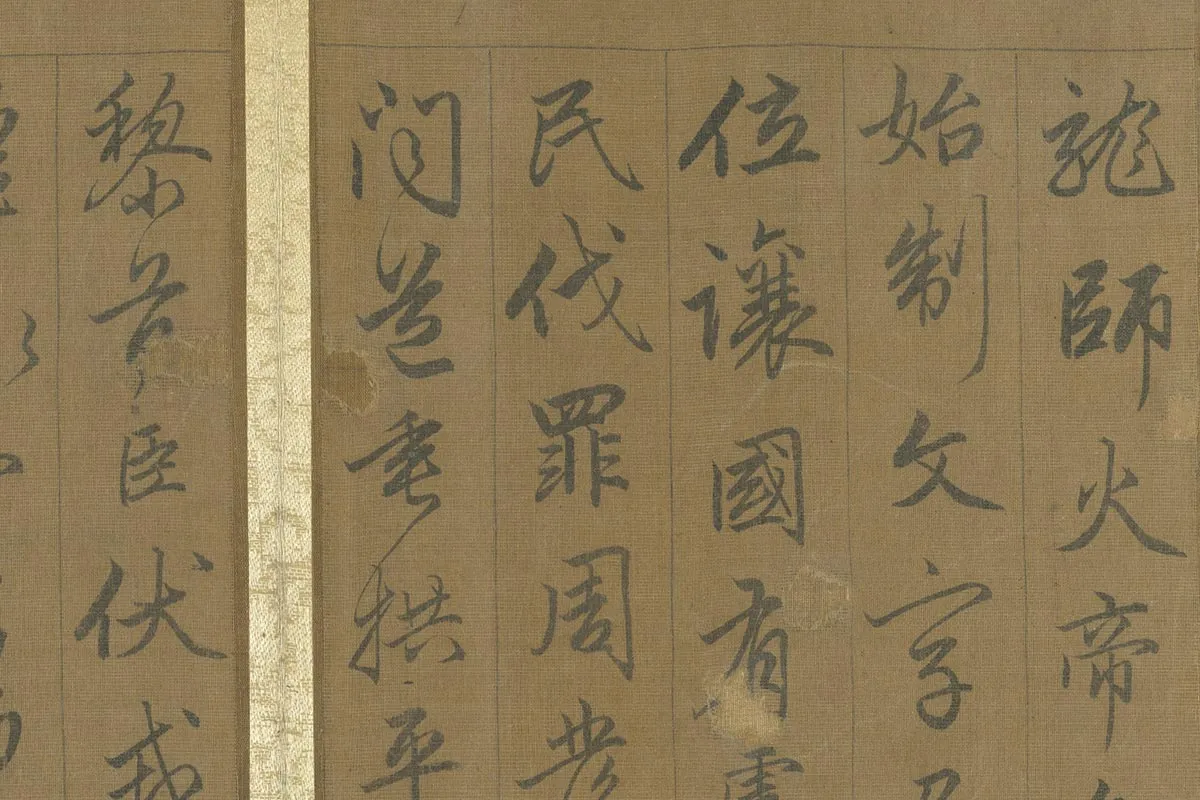 龍師火帝
始制文字乃
位讓國有虞
民伐罪周發
問道垂拱平
黎首臣伏戎